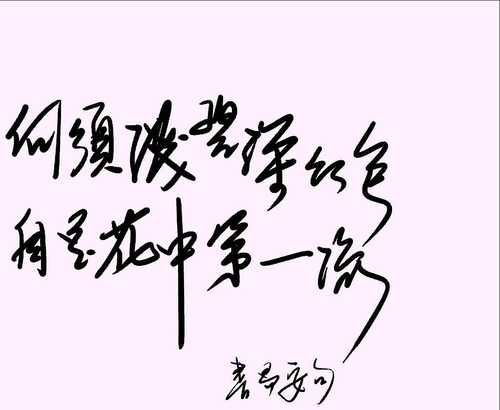 何須淺碧深紅色
自是花中第一流
書易安句